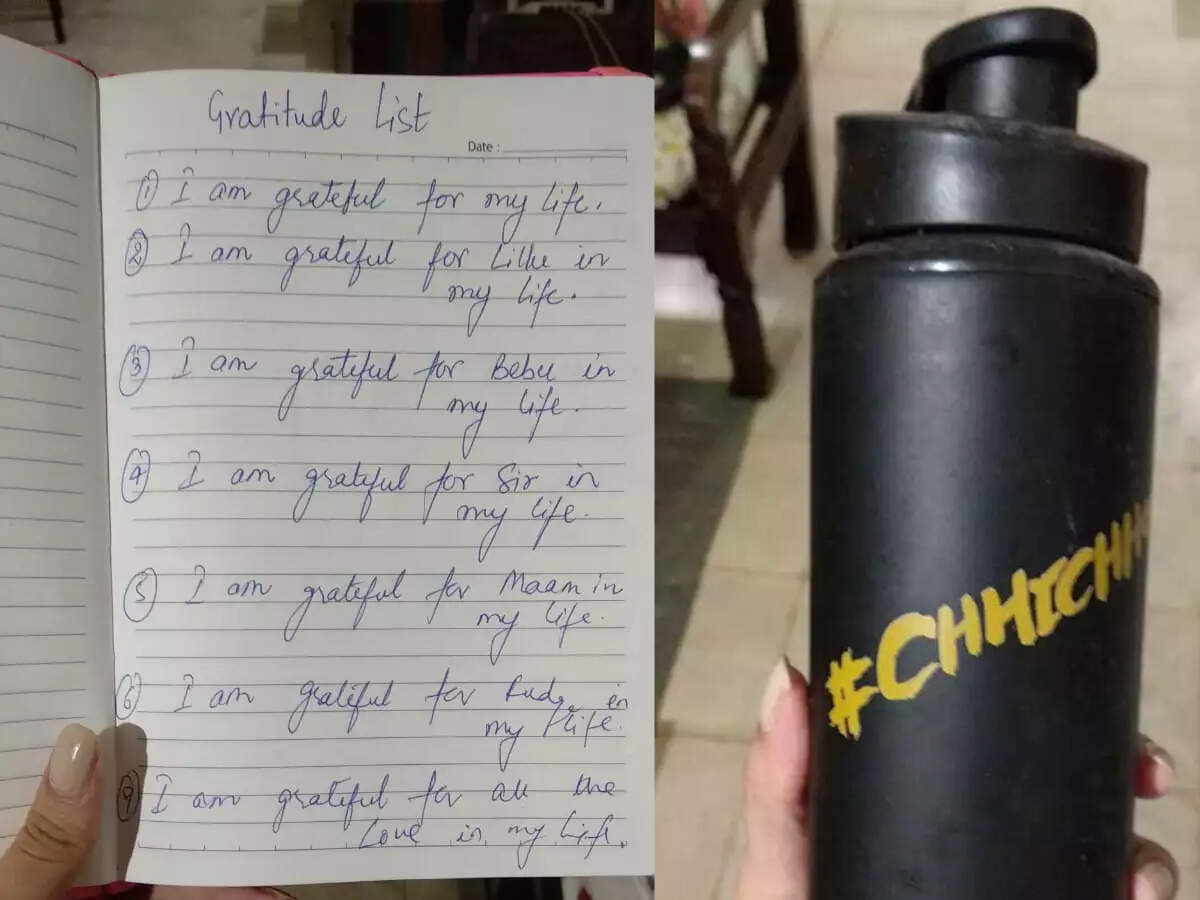 Gratitude List
Date :
① I am grateful for my life.
② I am grateful for Lillu in
my life.
③ I am grateful for Bebu in
my life.
④ I am grateful for Sir in
my life.
⑤ I am grateful for Maam in
my life.
⑥ I am grateful for in
my life.
I am grateful for all the
Love in my life.
#CHHICHH